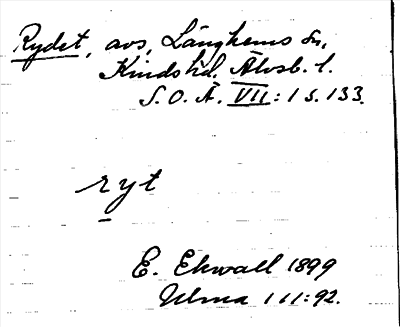 Rydet, avs, Länghems sn,
Kinds hd. Älvsb. l.
S. O. Ä. VII: 1 s. 133.
ryt
E. Ekwall 1899
Ulma 111:92.